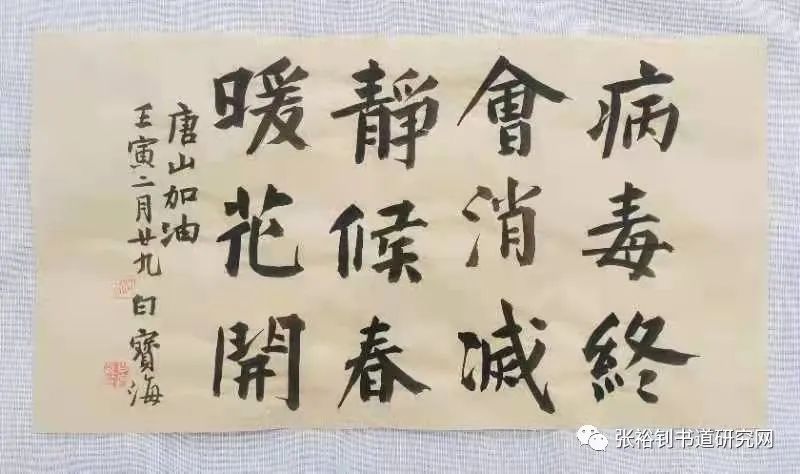 病毒終
會消滅
靜候春
暖花開
唐山加油
壬寅二月廿九
白寶海
张裕钊书道研究网